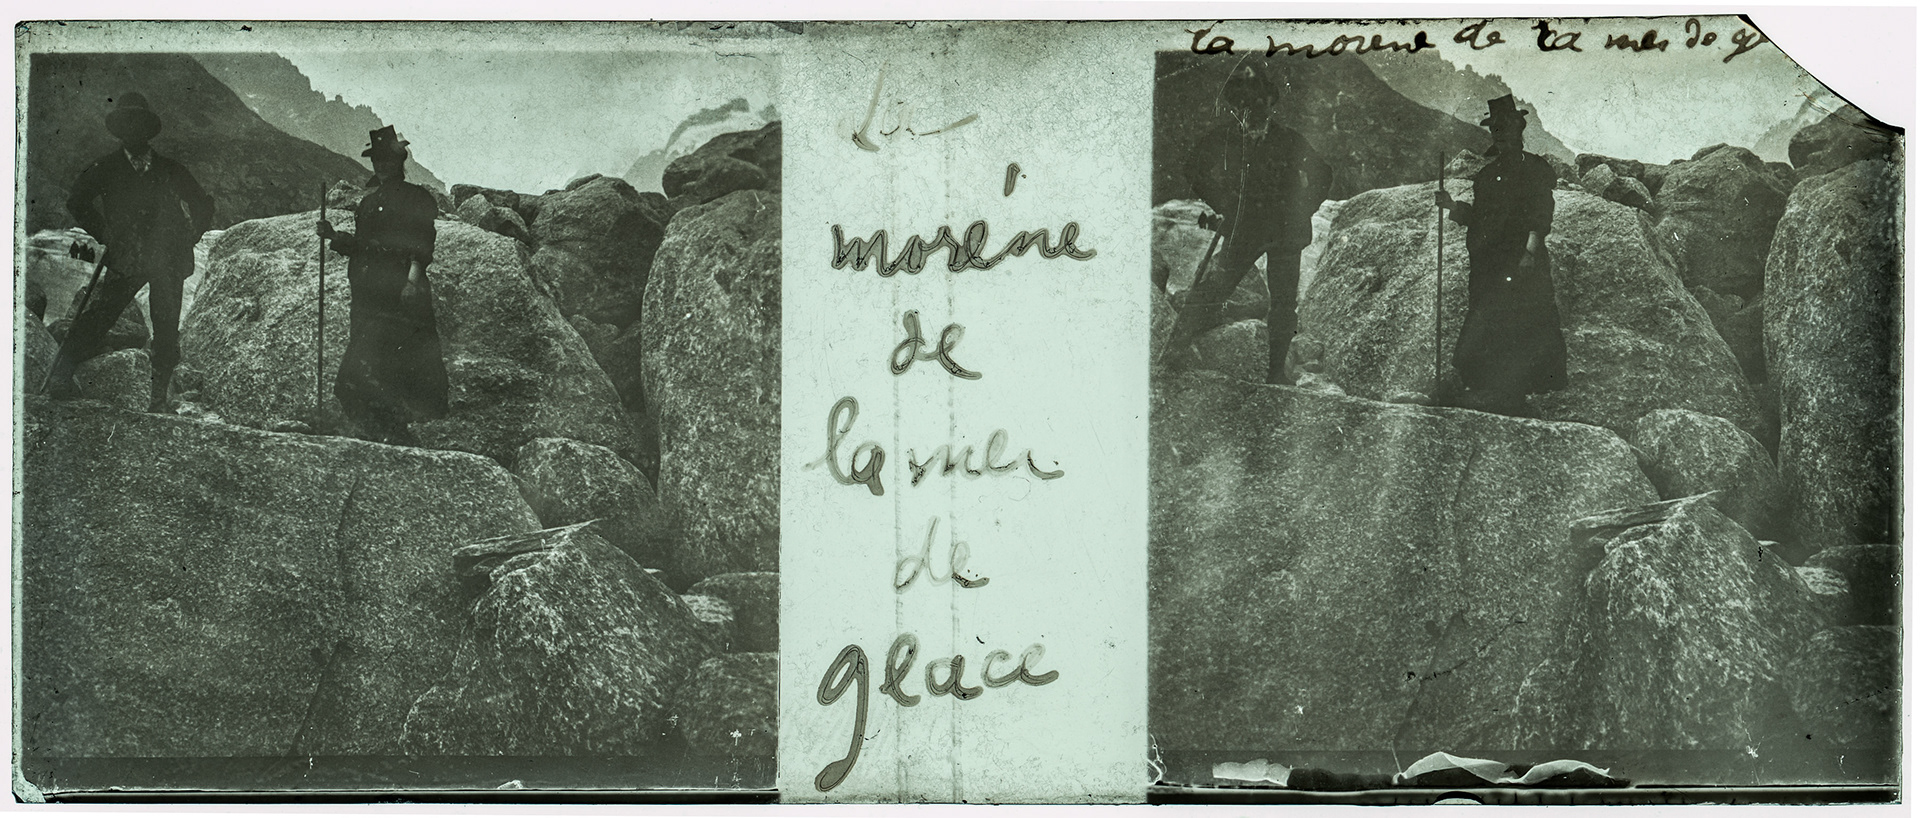 La
moréne
de
la mer
de
glace
la morene de la mer de g